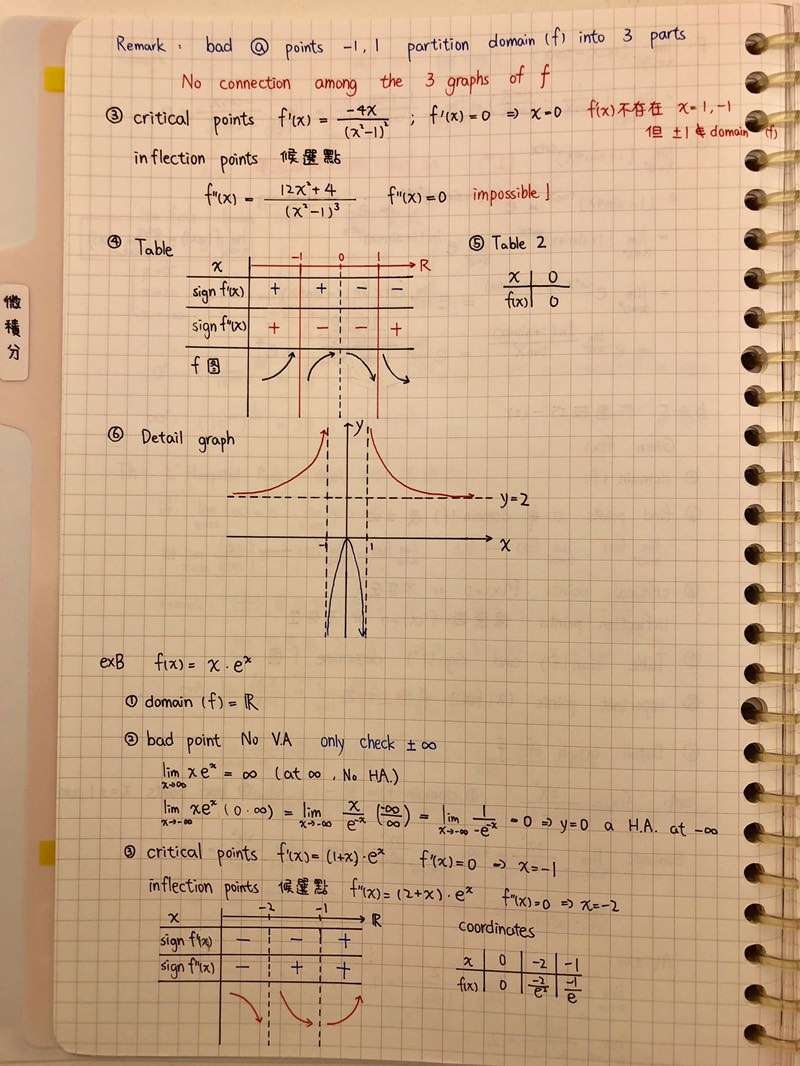 Remark : bad @ points -1, 1 partition domain (f) into 3 parts
No connection among the 3 graphs of f
③ critical points f'(x) = -4x/(x²-1)² ; f'(x)=0 ⇒ x=0 f(x)不存在 x=1,-1
但 ±1 ∉ domain (f)
inflection points 候選點
f"(x) = 12x²+4/(x²-1)³ f"(x)=0 impossible !
④ Table ⑤ Table 2
x -1 0 1 R
sign f'(x) + + - -
sign f"(x) + - - +
f 圖
x 0
f(x) 0
⑥ Detail graph
y
y=2
x
-1 1
exB f(x) = x · eˣ
① domain (f) = ℝ
② bad point No V.A only check ±∞
lim x→∞ xeˣ = ∞ (at ∞, No HA.)
lim x→-∞ xeˣ (0·∞) = lim x→-∞ x/e⁻ˣ (-∞/∞) = lim x→-∞ 1/-e⁻ˣ = 0 ⇒ y=0 a H.A. at -∞
③ critical points f'(x) = (1+x)·eˣ f'(x)=0 ⇒ x=-1
inflection points 候選點 f"(x) = (2+x)·eˣ f"(x)=0 ⇒ x=-2
x -2 -1 ℝ
sign f'(x) - - +
sign f"(x) - + +
coordinates
x 0 -2 -1
f(x) 0 -2/e² -1/e
微積分